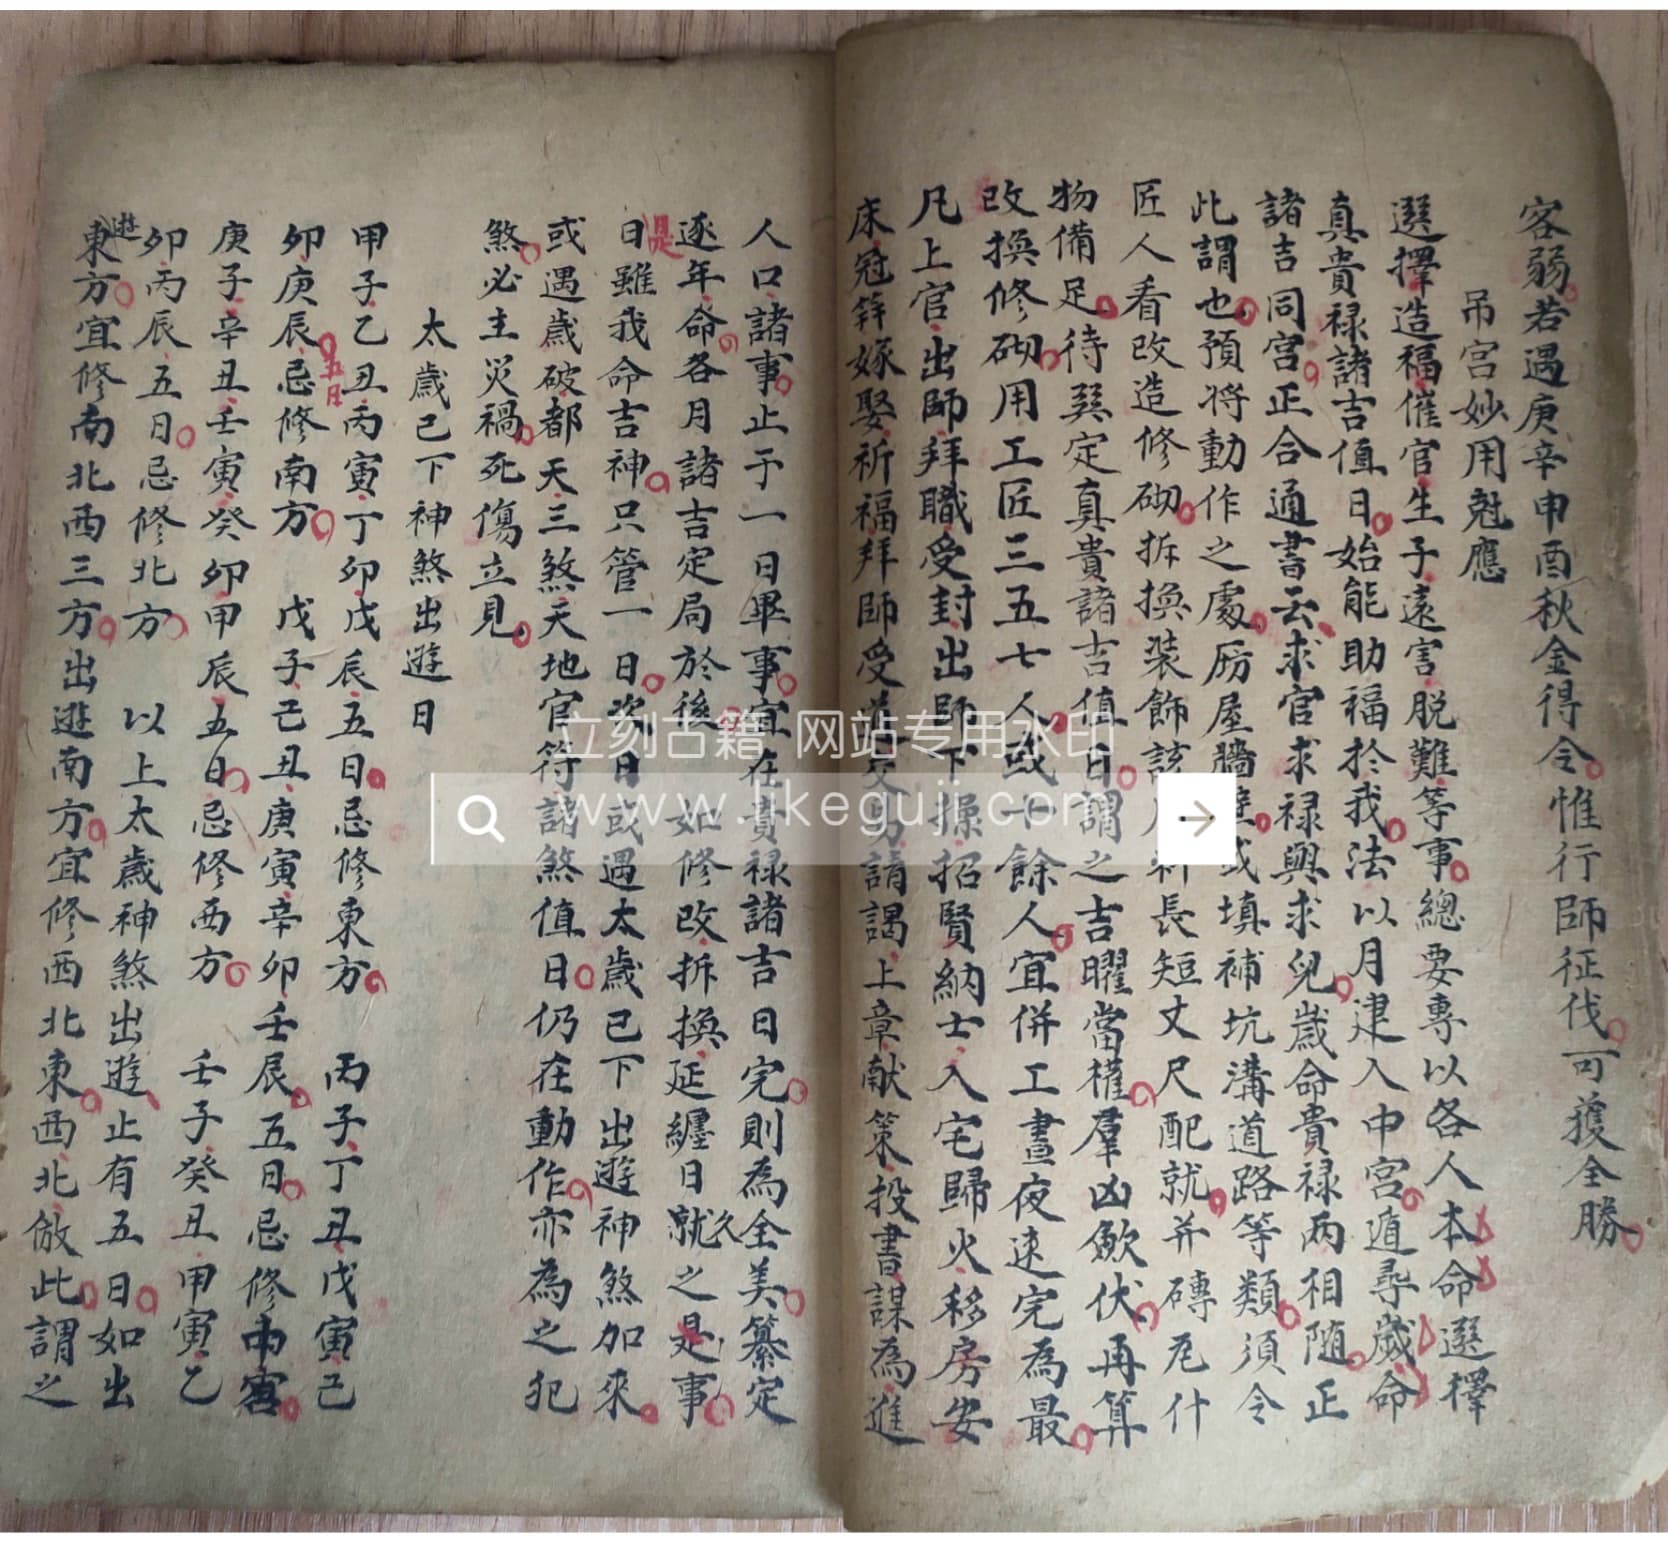 客弱若遇庚辛申酉秋金得令惟行師征伐可獲全勝
吊宮妙用尅應
選擇造福催官生子遠害脱難等事總要專以各人本命選擇
真貴禄諸吉值日始能助福於我法以月建入中宮遁尋歲命
諸吉同宮正合通書云求官求禄與求兒歲命貴禄两相随正
此謂也預將動作之處房屋牆壁或填補坑溝道路等類須令
匠人看改造修砌拆換装飾該長短丈尺配就并磚瓦什
物備足待選定真貴諸吉值日謂之吉曜當權羣凶斂伏再算
改換修砌用工匠三五七人或十餘人宜併工晝夜速完為最
凡上官出師拜職受封出師下操招賢納士入宅歸火移房安
床冠笄嫁娶祈福拜師受交易請謁上章献策投書謀為進
人口諸事止于一日畢事宜在貴禄諸吉日完則為全美纂定
逐年命各月諸吉定局於後 如修改拆換延纏日就久之是事
是
日雖我命吉神只管一日次日或遇太歲已下出遊神煞加来
或遇歲破都天三煞天地官符諸煞值日仍在動作亦為之犯
煞必主災禍死傷立見
太歲已下神煞出遊日
甲子乙丑丙寅丁卯戊辰五日忌修東方 丙子丁丑戊寅己
卯庚辰五日忌修南方 戊子己丑庚寅辛卯壬辰五日忌修中宮
庚子辛丑壬寅癸卯甲辰五日忌修西方 壬子癸丑甲寅乙
卯丙辰五日忌修北方 以上太歲神煞出遊止有五日如出
遊
東方宜修南北西三方出遊南方宜修西北東西北倣此謂之
立刻古籍 网站专用水印
www.likeguji.com